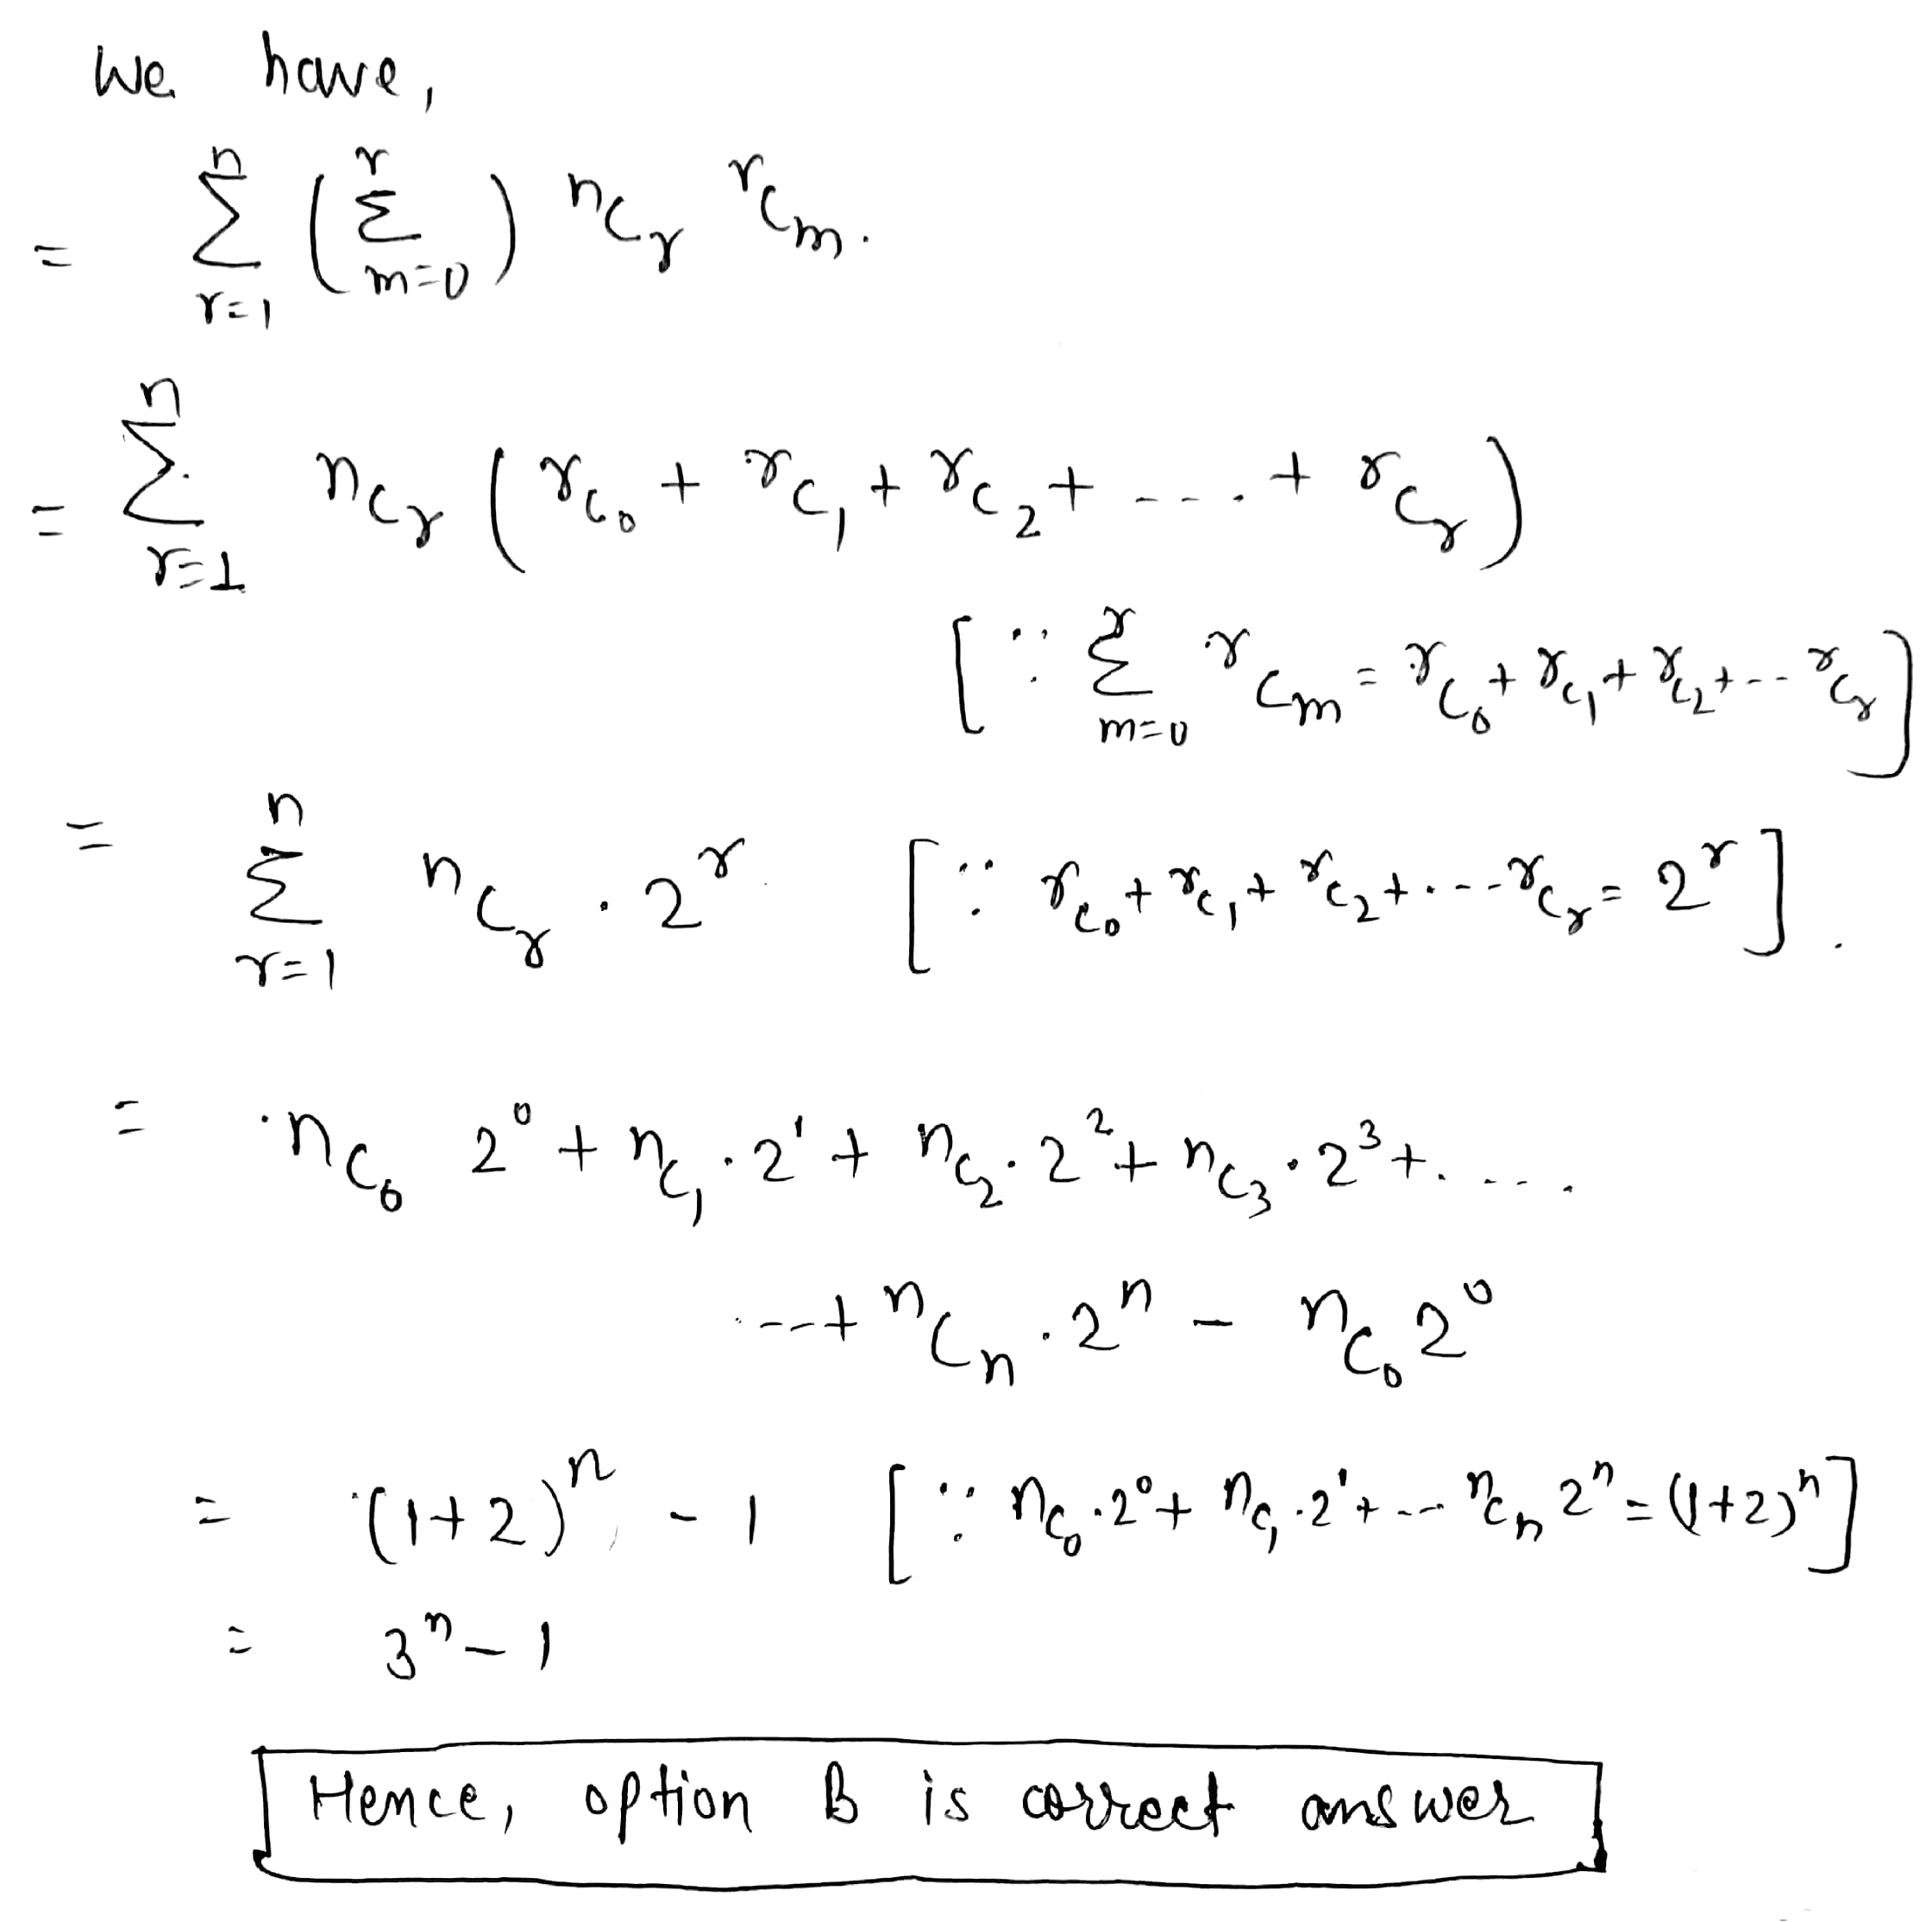 We have,
= $\sum_{r=1}^{n} \left( \sum_{m=0}^{r} \right) {}^{n}C_{r} \; {}^{r}C_{m}$.
= $\sum_{r=1}^{n} {}^{n}C_{r} \left( {}^{r}C_{0} + {}^{r}C_{1} + {}^{r}C_{2} + ---- + {}^{r}C_{r} \right)$
$\left[ \because \sum_{m=0}^{r} {}^{r}C_{m} = {}^{r}C_{0} + {}^{r}C_{1} + {}^{r}C_{2} + -- {}^{r}C_{r} \right]$
= $\sum_{r=1}^{n} {}^{n}C_{r} \cdot 2^{r}$ $\left[ \because {}^{r}C_{0} + {}^{r}C_{1} + {}^{r}C_{2} + --- {}^{r}C_{r} = 2^{r} \right]$.
= ${}^{n}C_{0} \; 2^{0} + {}^{n}C_{1} \cdot 2^{1} + {}^{n}C_{2} \cdot 2^{2} + {}^{n}C_{3} \cdot 2^{3} + .----$
$--+ {}^{n}C_{n} \cdot 2^{n} - {}^{n}C_{0} \, 2^{0}$
= $(1+2)^{n} - 1$ $\left[ \because {}^{n}C_{0} \cdot 2^{0} + {}^{n}C_{1} \cdot 2^{1} + --- {}^{n}C_{n} \, 2^{n} = (1+2)^{n} \right]$
= $3^{n} - 1$
Hence, option B is correct answer